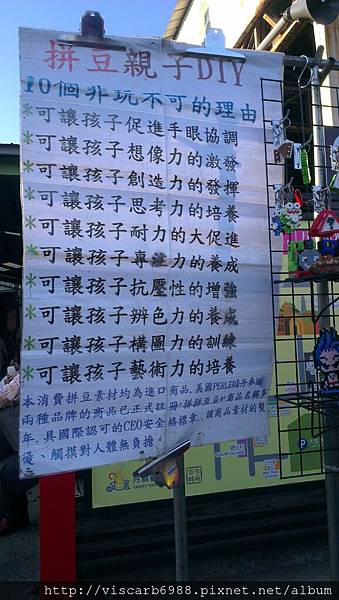 拼豆親子DIY
10個非玩不可的理由
*可讓孩子促進手眼協調
*可讓孩子想像力的激發
*可讓孩子創造力的發揮
*可讓孩子思考力的培養
*可讓孩子耐力的大促進
*可讓孩子專注力的養成
*可讓孩子抗壓性的增強
*可讓孩子辨色力的養成
*可讓孩子構圖力的訓練
*可讓孩子藝術力的培養
本消費拼豆素材均為進口商品，美國PERLER&丹麥
兩種品牌的商品已正式註冊"拼拼豆豆"商品名稱多
年，具國際認可的CEO安全格標章，該商品素材的髮
優、觸摸對人體無負擔。
SUGAR VILLAGE
http://viscarb6988.pixnet.net/album